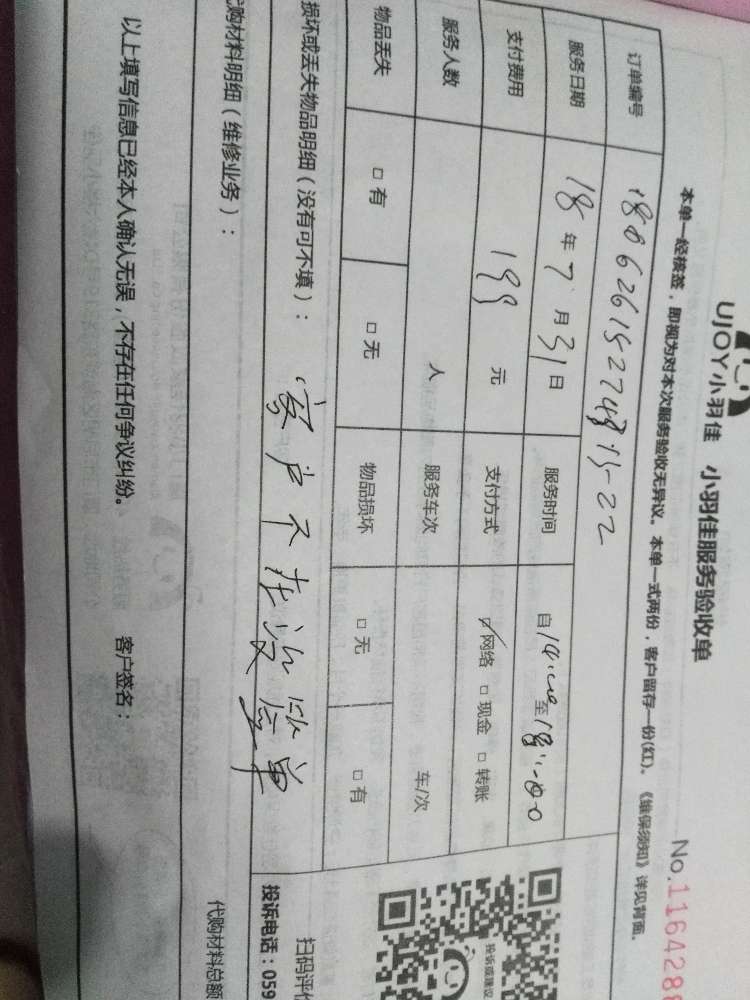 UJOY小羽佳 小羽佳服务验收单
No.116428
本单一经核签，即视为对本次服务验收无异议。本单一式两份，客户留存一份(红)。《维保须知》详见背面。
订单编号
服务日期 18年7月31日 服务时间 自14:00至18:00
支付费用 199元 支付方式 网络 □现金 □转账
服务人数 人 服务车次 车/次
物品丢失 □有 □无 物品损坏 □无 □有
损坏或丢失物品明细（没有可不填）：
客户不在没签单
代购材料明细（维修业务）：
代购材料总额
以上填写信息已经本人确认无误，不存在任何争议纠纷。 客户签名：
投诉或建议
扫码评价
投诉电话：059